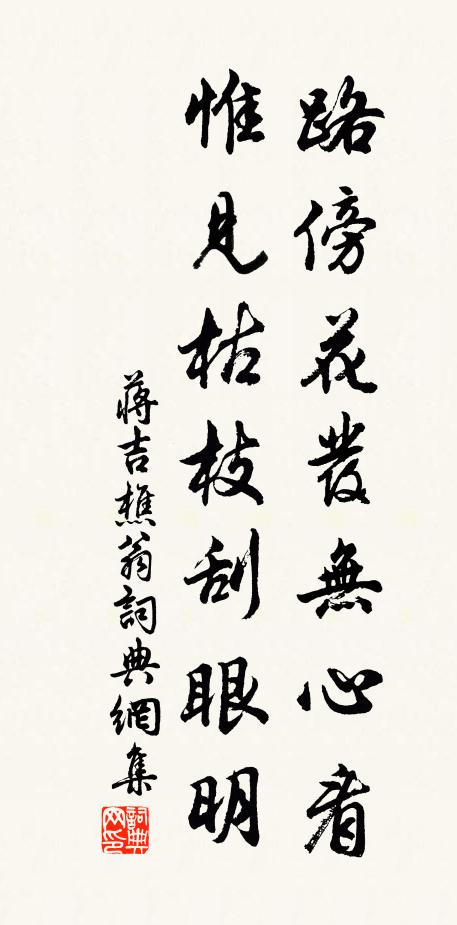 路傍花發無心看
惟見枯枝刮眼明
蔣吉樵翁詞典網集
詞典网印